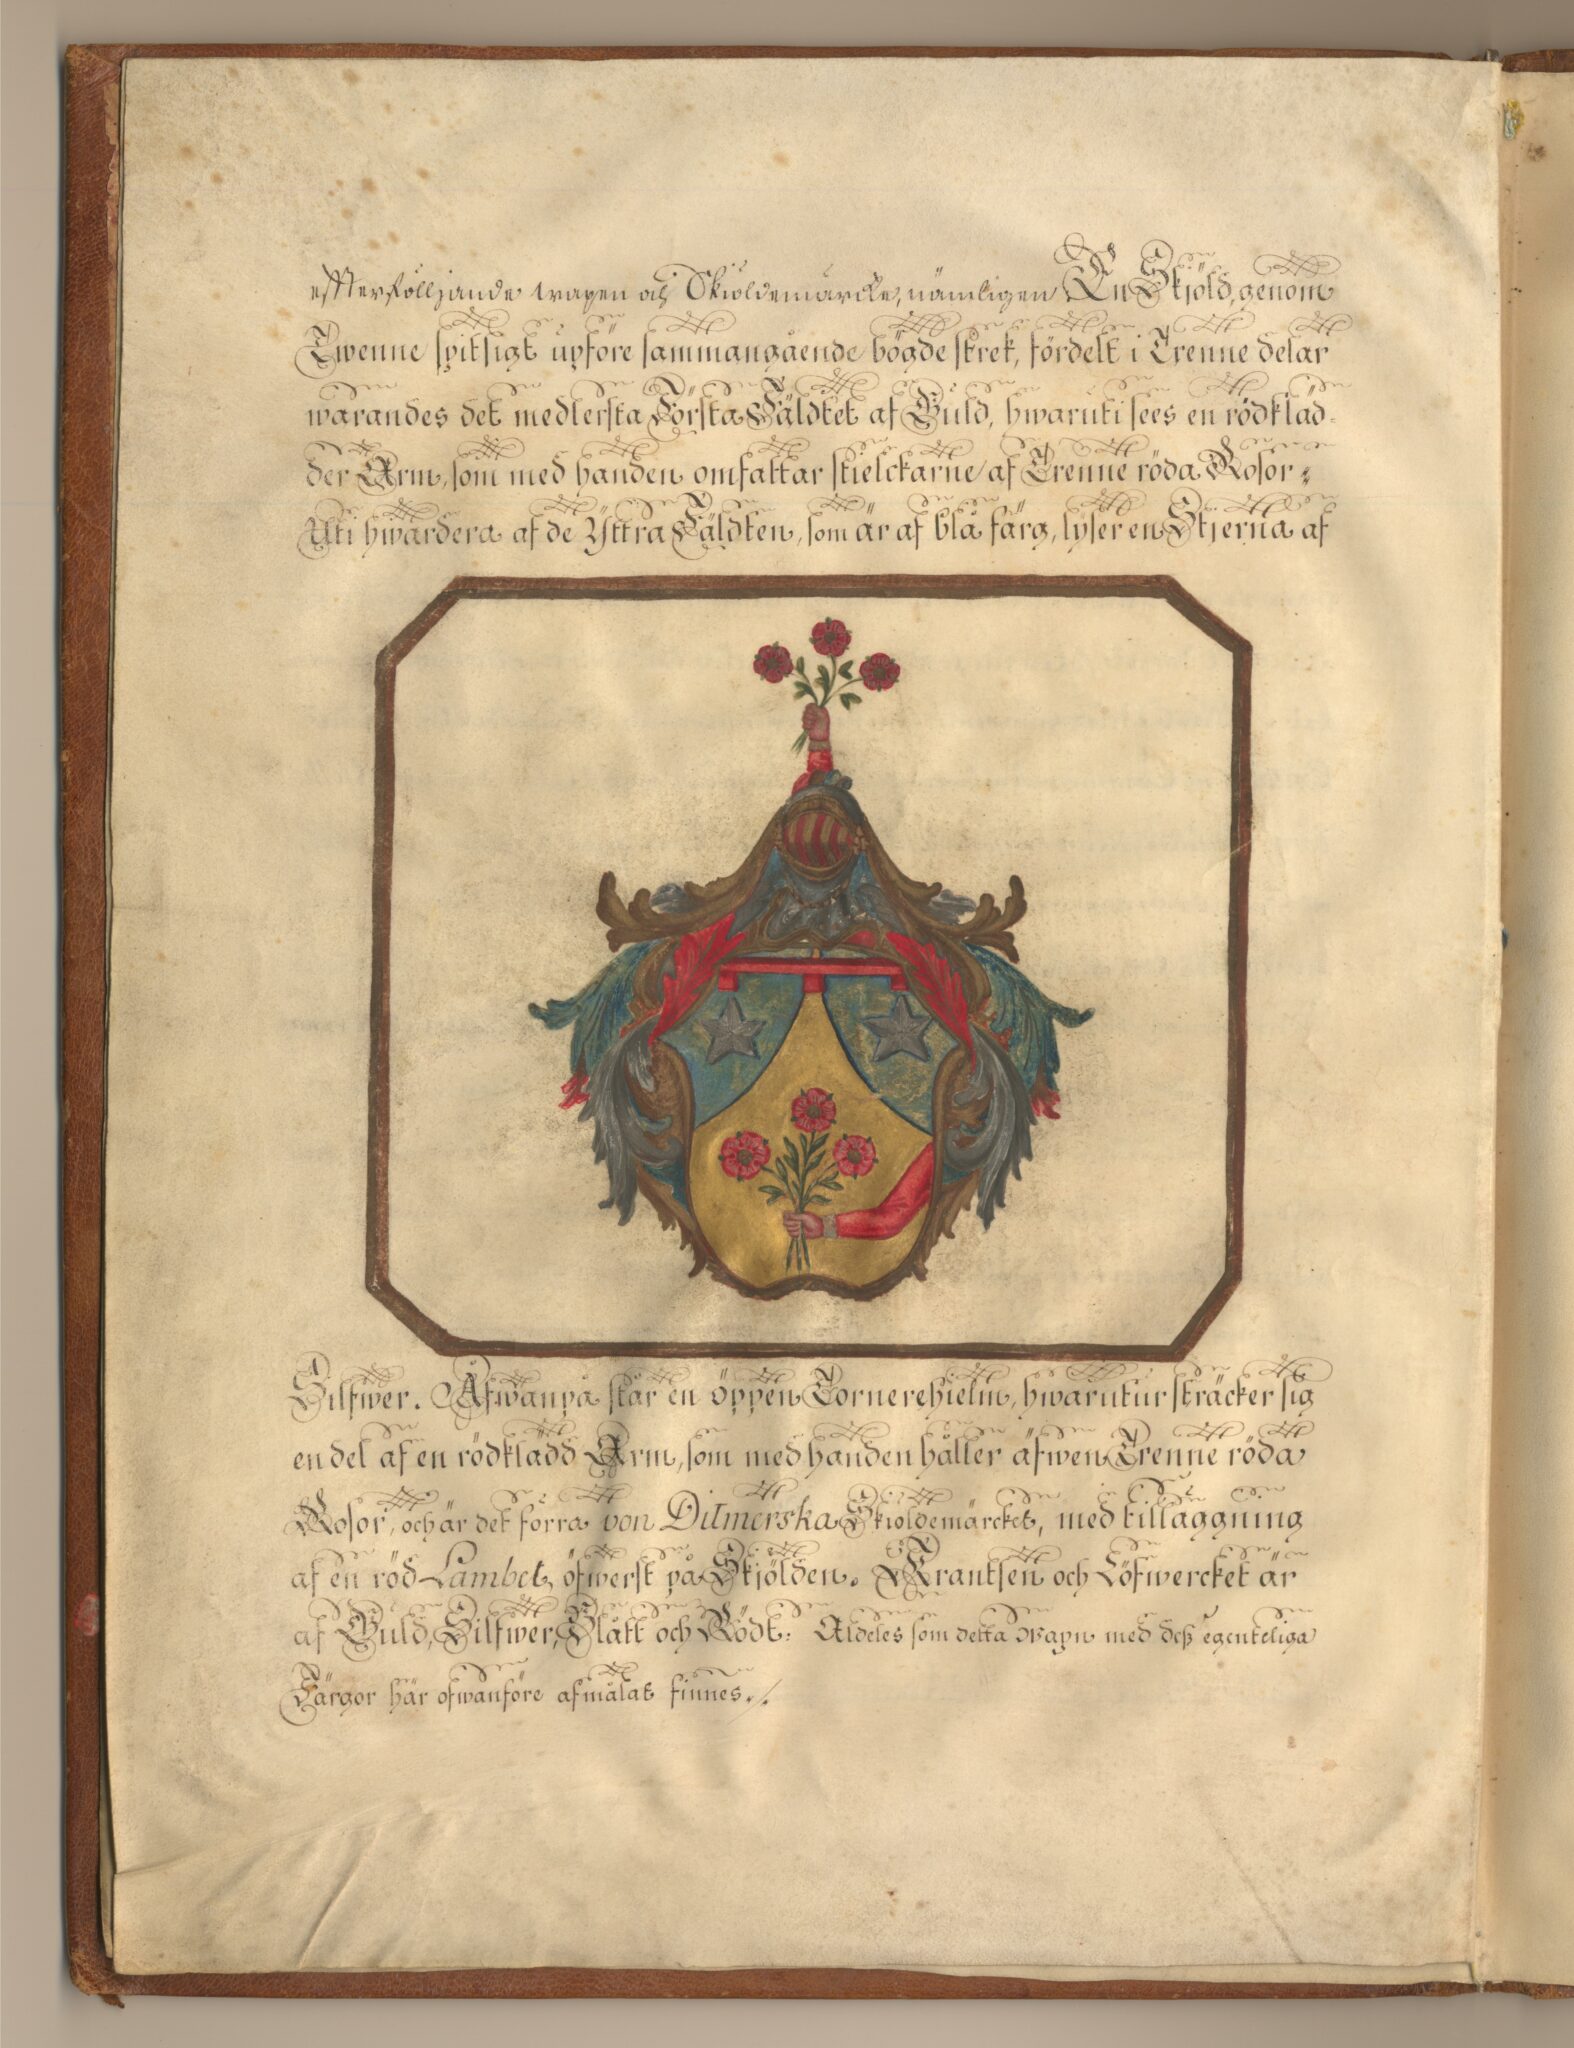 effterfölljande wapen och Skioldemärcke, nämligen En Skjöld, genom
Twenne spitsigt upföre sammangående bögde strek, fördelt i Trenne delar
warandes det medlersta Första Fäldtet af Guld, hwaruti sees en rödkläd-
der Arm, som med handen omfattar stielckarne af Trenne röda Rosor.
Uti hwardera af de Yttra Fäldten, som är af blå färg, lyser en Stjerna af
Silfwer. Åfwanpå står en öppen Tornerehielm, hwarutur sträcker sig
en del af en rödklädd Arm, som med handen håller äfwen Trenne röda
Rosor, och är det förra von Ditmerska Skioldemärcket, med tilläggning
af en röd Lambel, öfwerst på Skjölden. Krantsen och Löfwercket är
af Guld, Silfwer, Blått och Rödt. Aldeles som detta wapn med deß egenteliga
Färgor här ofwanföre afmålat finnes./.